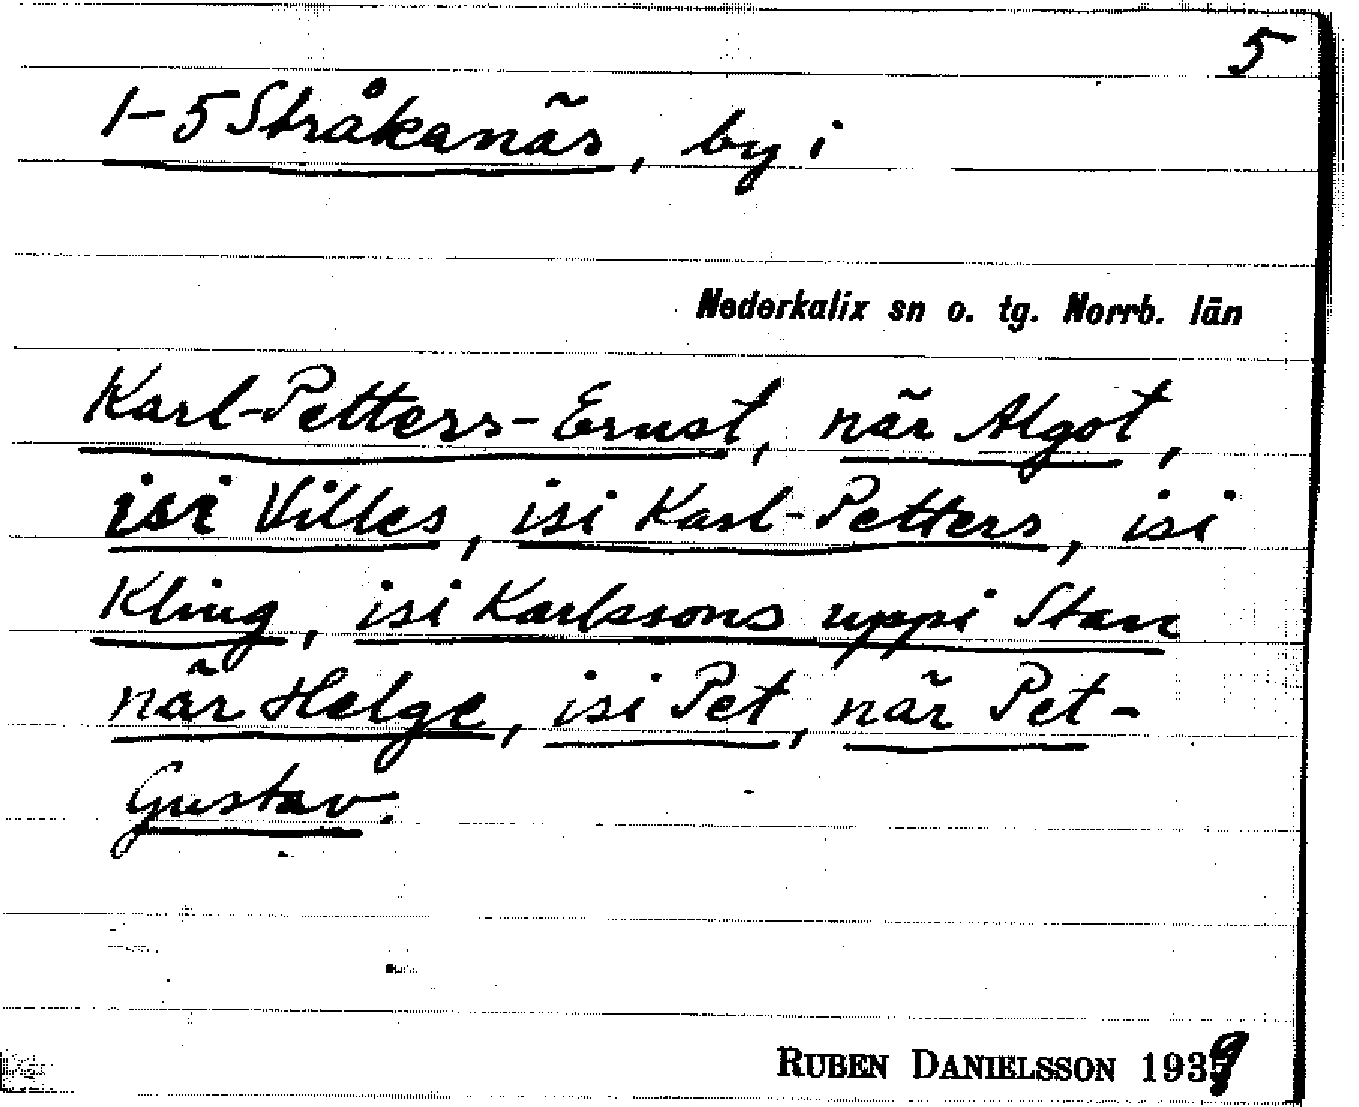 5
1-5 Stråkanäs, by i
Nederkalix sn o. tg. Norrb. län
Karl-Petters-Ernst, när Algot,
isi Villes, isi Karl-Petters, isi
Kling, isi Karlssons uppi Stan
när Helge, isi Pet, när Pet-
Gustav.
RUBEN DANIELSSON 1939